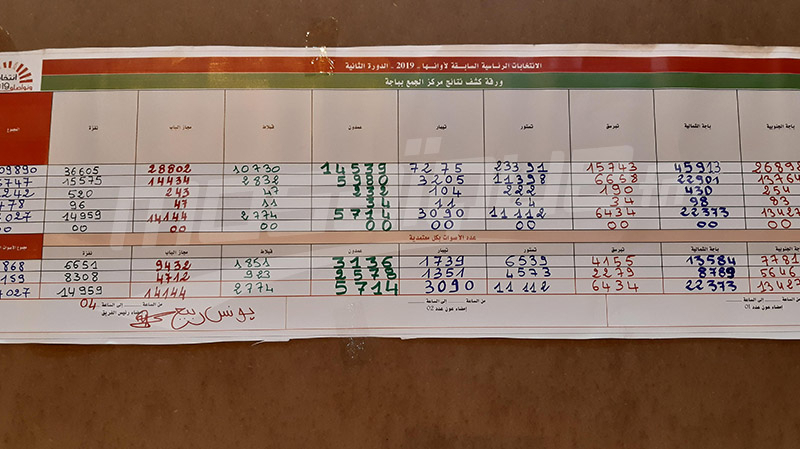 الانتخابات الرئاسية السابقة لأوانها - 2019 - الدورة الثانية
ورقة كشف نتائج مركز الجمع بباجة
باجة الجنوبية باجة الشمالية تبرسق تستور تيبار عمدون قبلاط مجاز الباب نفزة المجموع
45913 15743 23391 7275 14539 10730 28802 36605 09890
13764 22901 6668 11398 3205 5980 2832 14434 15575 6747
254 430 190 222 104 47 243 520 242
83 98 34 64 11 11 47 96 478
13427 22373 6434 11112 3090 5714 2774 14144 14959 4027
00 00 00 00 00 00 00 00 00 00
عدد الأصوات بكل معتمدية
باجة الجنوبية باجة الشمالية تبرسق تستور تيبار عمدون قبلاط مجاز الباب نفزة مجموع الأصوات
7781 13584 4155 6539 1739 3136 1851 9432 6651 868
5646 8789 2279 4573 1351 2578 923 4712 8308 159
13427 22373 6434 11112 3090 5714 2774 14144 14959 7027
من الساعة إلى الساعة
إمضاء عون عدد 01
من الساعة إلى الساعة
إمضاء عون عدد 02
من الساعة إلى الساعة 04
إمضاء رئيس الفريق
يونس ربيع